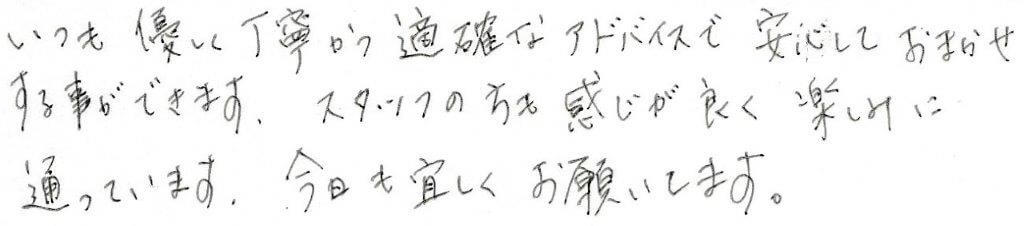 いつも 優しく 丁寧かつ 適確な アドバイスで 安心して おまかせ
する事ができます。 スタッフの方も 感じが 良く 楽しみに
通っています。 今日も宜しく お願いします。